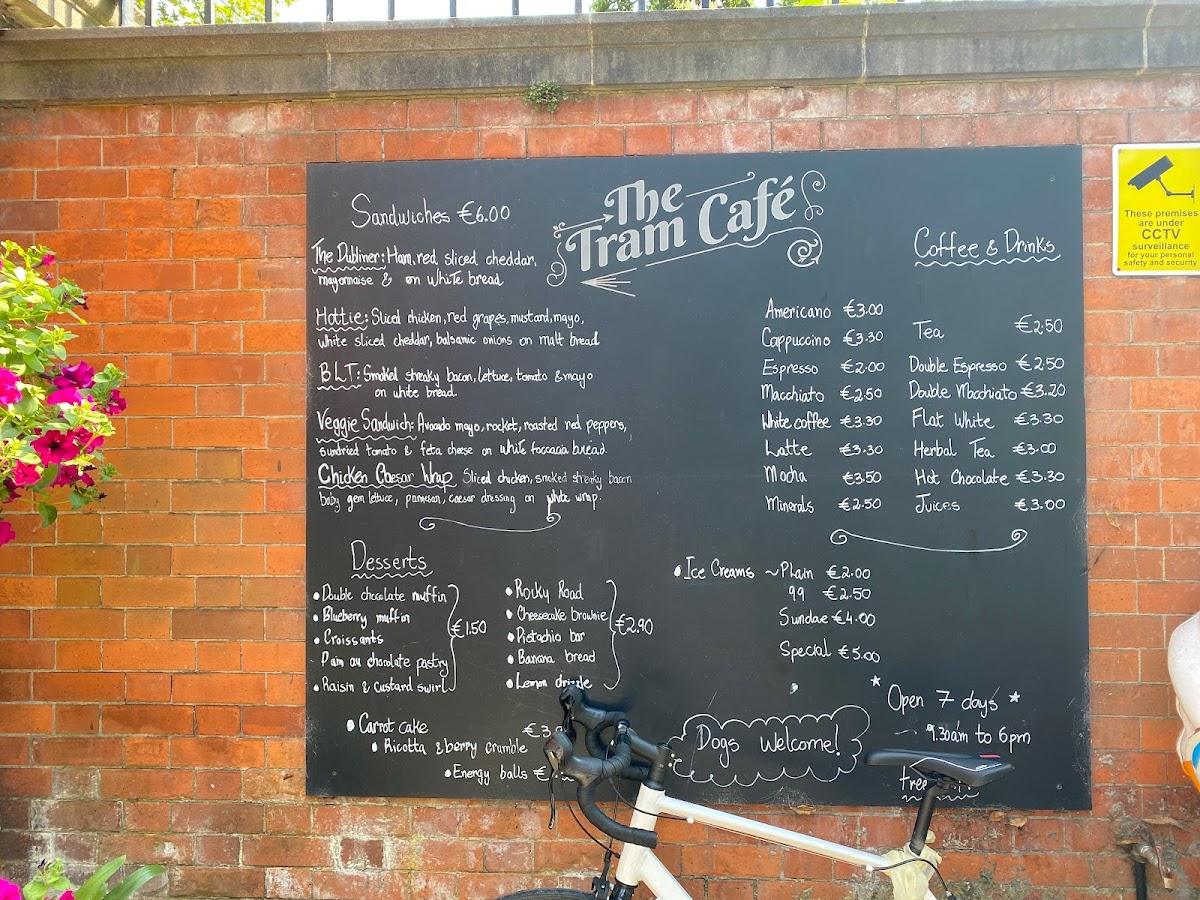 The
Tram Café
Sandwiches €6.00
The Dubliner: Ham, red sliced cheddar,
mayonnaise & on white bread
Hottie: Sliced chicken, red grapes, mustard, mayo,
white sliced cheddar, balsamic onions on malt bread
BLT: Smoked streaky bacon, lettuce, tomato & mayo
on white bread.
Veggie Sandwich: Avocado mayo, rocket, roasted red peppers,
sundried tomato & feta cheese on white foccacia bread
Chicken Caesar Wrap Sliced chicken, smoked streaky bacon
baby gem lettuce, parmesan, caesar dressing on white wrap.
Desserts
• Double chocolate muffin
• Blueberry muffin
• Croissants
Pain au chocolate pastry
• Raisin & custard swirl
€1.50
• Rocky Road
• Cheesecake brownie
• Pistachio bar
• Banana bread
• Lemon drizzle
€2.90
• Carrot cake €3.
• Ricotta & berry crumble
• Energy balls €
Coffee & Drinks
Americano €3.00
Cappuccino €3.30
Espresso €2.00
Macchiato €2.50
White coffee €3.30
Latte €3.30
Mocha €3.50
Minerals €2.50
Tea €2.50
Double Espresso €2.50
Double Macchiato €3.20
Flat White €3.30
Herbal Tea €3.00
Hot Chocolate €3.30
Juices €3.00
• Ice Creams ~ Plain €2.00
99 €2.50
Sundae €4.00
Special €5.00
Open 7 days
9.30am to 6pm
Dogs Welcome!
These premises
are under
CCTV
surveillance
for your personal
safety and security